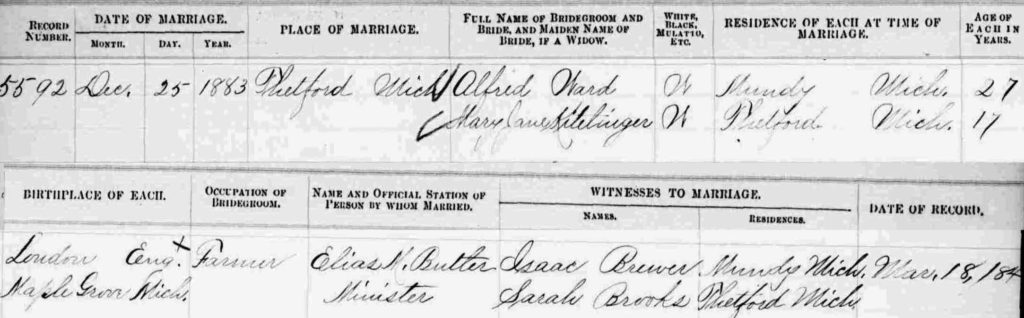 RECORD NUMBER. DATE OF MARRIAGE. PLACE OF MARRIAGE. FULL NAME OF BRIDEGROOM AND BRIDE, AND MAIDEN NAME OF BRIDE, IF A WIDOW. WHITE, BLACK, MULATTO, ETC. RESIDENCE OF EACH AT TIME OF MARRIAGE. AGE OF EACH IN YEARS.
MONTH. DAY. YEAR.
5592 Dec. 25 1883 Thetford Mich Alfred Ward W Mundy Mich. 27
Mary Jane W Thetford Mich. 17
BIRTHPLACE OF EACH. OCCUPATION OF BRIDEGROOM. NAME AND OFFICIAL STATION OF PERSON BY WHOM MARRIED. WITNESSES TO MARRIAGE. DATE OF RECORD.
NAMES. RESIDENCES.
London Eng. x Farmer Elias N. Butler Isaac Brewer Mundy Mich. Mar. 18, 184
Maple Grove Mich. Minister Sarah Brooks Thetford Mich.